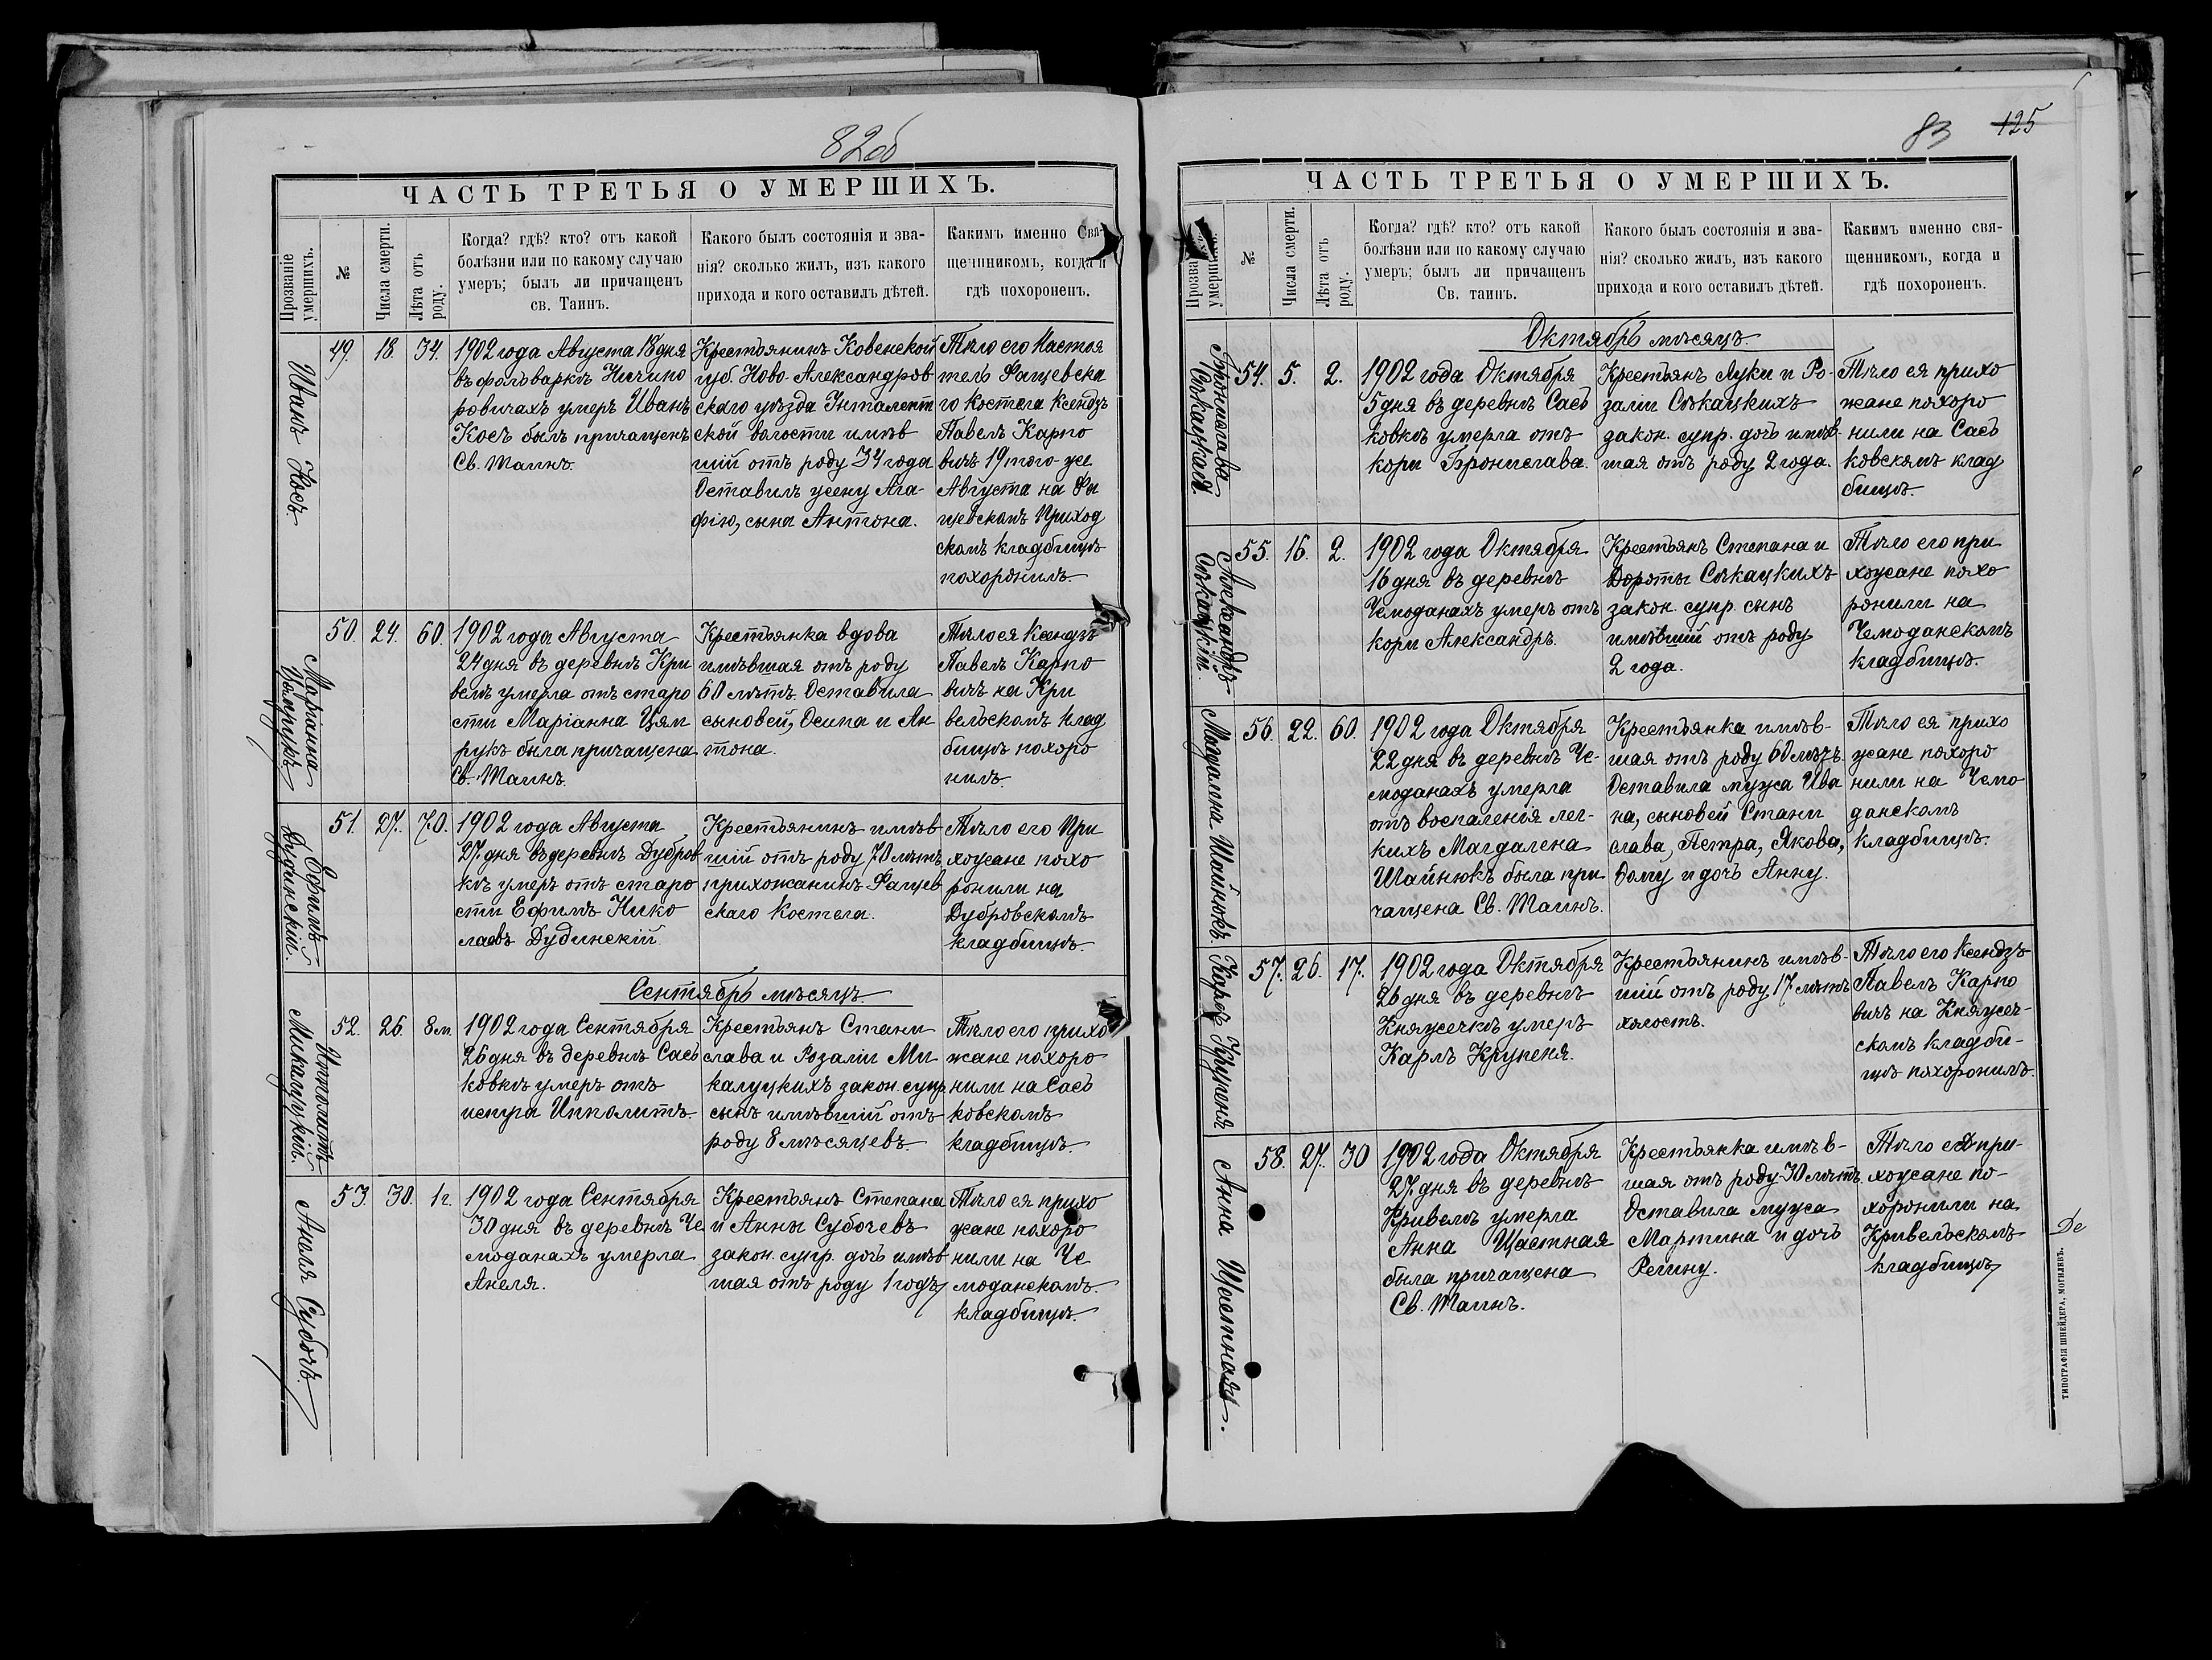 82об
ЧАСТЬ ТРЕТЬЯ О УМЕРШИХЪ.
Прозваніе умершихъ.
№
Числа смерти.
Лѣта отъ роду.
Когда? гдѣ? кто? отъ какой
болѣзни или по какому случаю
умеръ; былъ ли причащенъ
св. Таинъ.
Какого былъ состоянія и зва-
нія? сколько жилъ, изъ какого
прихода и кого оставилъ дѣтей.
Каким​ъ именно Свя-
щенникомъ, когда и
гдѣ похороненъ.
Иванъ Косъ
49. 18. 34.
1902 года Августа 18 дня
въ фольваркѣ Ничипо
ровичахъ умеръ Иванъ
Косъ былъ причащенъ
Св. Таинъ.
Крестьянинъ Ковенской
губ. Ново-Александров
скаго уѣзда
ской волости имѣв
шій отъ роду 34 года
Оставилъ жену Ага-
фію, сына Антона.
Тѣло его Настоя
тель Фащевска
го костела Ксендзъ
Павелъ Карпо
вичъ 19 того-же
Августа на Фа
щевскомъ Приход
скомъ кладбищѣ
похоронилъ.
Маріанна Цяпрукъ
50. 24. 60.
1902 года Августа
24 дня въ деревнѣ Кри
велѣ умерла отъ старо
сти Маріанна Цяп
рукъ была причащена
Св. Таинъ.
Крестьянка вдова
имѣвшая отъ роду
60 лѣтъ. Оставила
сыновей, Осипа и Ан
тона.
Тѣло ея Ксендзъ
Павелъ Карпо
вичъ на Кри
вельскомъ клад
бищѣ похоро
нилъ.
Ефимъ Дудинскій.
51. 27. 70.
1902 года Августа
27 дня въ деревнѣ Дубров
кѣ умеръ отъ старо
сти Ефимъ Нико
лаевъ Дудинскій.
Крестьянинъ имѣв
шій отъ роду 70 лѣтъ,
прихожанинъ Фащев
скаго Костела.
Тѣло его При
хожане похо
ронили на
Дубровскомъ
кладбищѣ.
Сентябрь мѣсяцъ
Ипполитъ Микалуцкій.
52. 26. 8 м.
1902 года Сентября
26 дня въ деревнѣ Сась
ковкѣ умеръ отъ
испуга Ипполитъ.
Крестьянъ Стани
слава и Розаліи Ми
калуцкихъ закон. супр
сынъ имѣвшій отъ
роду 8 мѣсяцевъ.
Тѣло его прихо
жане похоро
нили на Сась
ковскомъ
кладбищѣ.
Анеля Субочъ.
53. 30. 1 г.
1902 года Сентября
30 дня въ деревнѣ Че
моданахъ умерла
Анеля.
Крестьянъ Степана
и Анны Субочевъ
закон. супр. дочь имѣв
шая отъ роду 1 годъ
Тѣло ея прихо
жане похоро
нили на Че
моданскомъ.
кладбищѣ.
83 125
ЧАСТЬ ТРЕТЬЯ О УМЕРШИХЪ.
№
Числа смерти.
Лѣта отъ роду.
Когда? гдѣ? кто? отъ какой
болѣзни или по какому случаю
умеръ; былъ ли причащенъ
Св. таинъ.
Какого былъ состоянія и зва-
нія? сколько жилъ, изъ какого
прихода и кого оставилъ дѣтей.
Какимъ именно свя-
щенникомъ, когда и
гдѣ похороненъ.
Октябрь мѣсяцъ
Брониславa Сѣкацкая
54. 5. 2.
1902 года Октября
5 дня въ деревнѣ Сась
ковкѣ умерла отъ
кори Бронислава.
Крестьянъ Луки и Ро-
заліи Сѣкацкихъ
закон. супр. дочь имѣв-
шая отъ роду 2 года.
Тѣло ея прихо
жане похоро
нили на Сась
ковскомъ клад
бищѣ.
Александръ Сѣкацкій.
55. 16. 2.
1902 года Октября
16 дня въ деревнѣ
Чемоданахъ умеръ отъ
кори Александръ.
Крестьянъ Степана и
Дороты Сѣкацкихъ
закон. супр. сынъ
имѣвшій отъ роду
2 года.
Тѣло его при
хожане похо
ронили на
Чемоданскомъ
кладбищѣ.
Магдалена Шайнюкъ.
56. 22. 60.
1902 года Октября
22 дня въ деревнѣ Че-
моданахъ умерла
отъ воспаленія лег-
кихъ Магдалена
Шайнюкъ была при
чащена Св. Таинъ.
Крестьянка имѣв-
шая отъ роду 60 лѣтъ.
Оставила мужа Ива
на, сыновей Стани
слава, Петра, Якова,
Фому и дочь Анну.
Тѣло ея прихо
жане похоро
нили на Чемо
данскомъ
кладбищѣ.
Карлъ Крупеня
57. 26. 17.
1902 года Октября
26 дня въ деревнѣ
Княжечкѣ умеръ
Карлъ Крупеня.
Крестьянинъ имѣв-
шій отъ роду 17 лѣтъ
холостъ.
Тѣло его Ксендзъ
Павелъ Карпо
вичъ на Княжеч-
скомъ кладби-
щѣ похоронилъ.
Анна Щастная.
58. 27. 30
1902 года Октября
27 дня въ деревнѣ
Кривелѣ умерла
Анна Щастная
была причащена
Св. Таинъ.
Крестьянка имѣв-
шая отъ роду 30 лѣтъ
Оставила мужа
Мартина и дочь
Регину.
Тѣло ея при-
хожане по-
хоронили на
Кривельскомъ
кладбищѣ
Де
ТИПОГРАФІЯ ШНЕЙДЕРА, МОГИЛЕВЪ.